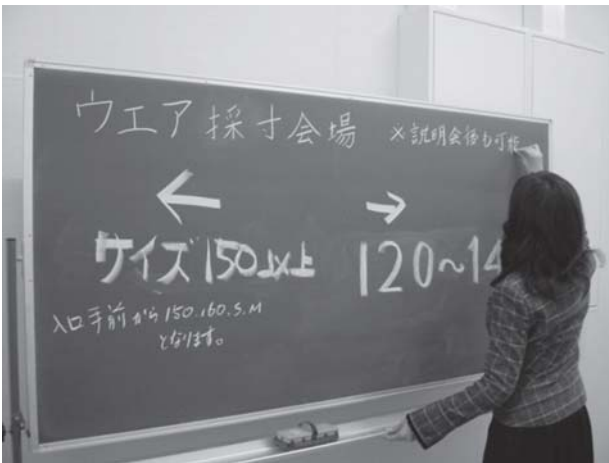 ウエア採寸会場 ※説明会後も可能
← →
サイズ150以上 120~14
入口手前から150.160.S.M
となります。